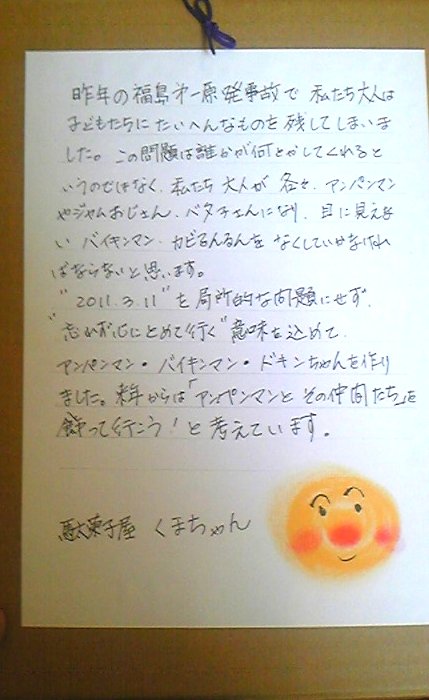 昨年の福島第一原発事故で 私たち大人は
子どもたちにたいへんなものを残してしまいま
した。この問題は誰かが何とかしてくれると
いうのではなく、私たち大人が各々、アンパンマン
やジャムおじさん、バタ子さんになり、目に見えな
い バイキンマン、カビるんるんを なくしていかなけれ
ばならないと思います。
"2011.3.11"を局所的な問題にせず、
"忘れず心にとめて行く"意味を込めて、
アンパンマン・バイキンマン・ドキンちゃんを作り
ました。来年からは「アンパンマンと その仲間たち」を
飾って行こう!と考えています。
駄菓子屋 くまちゃん